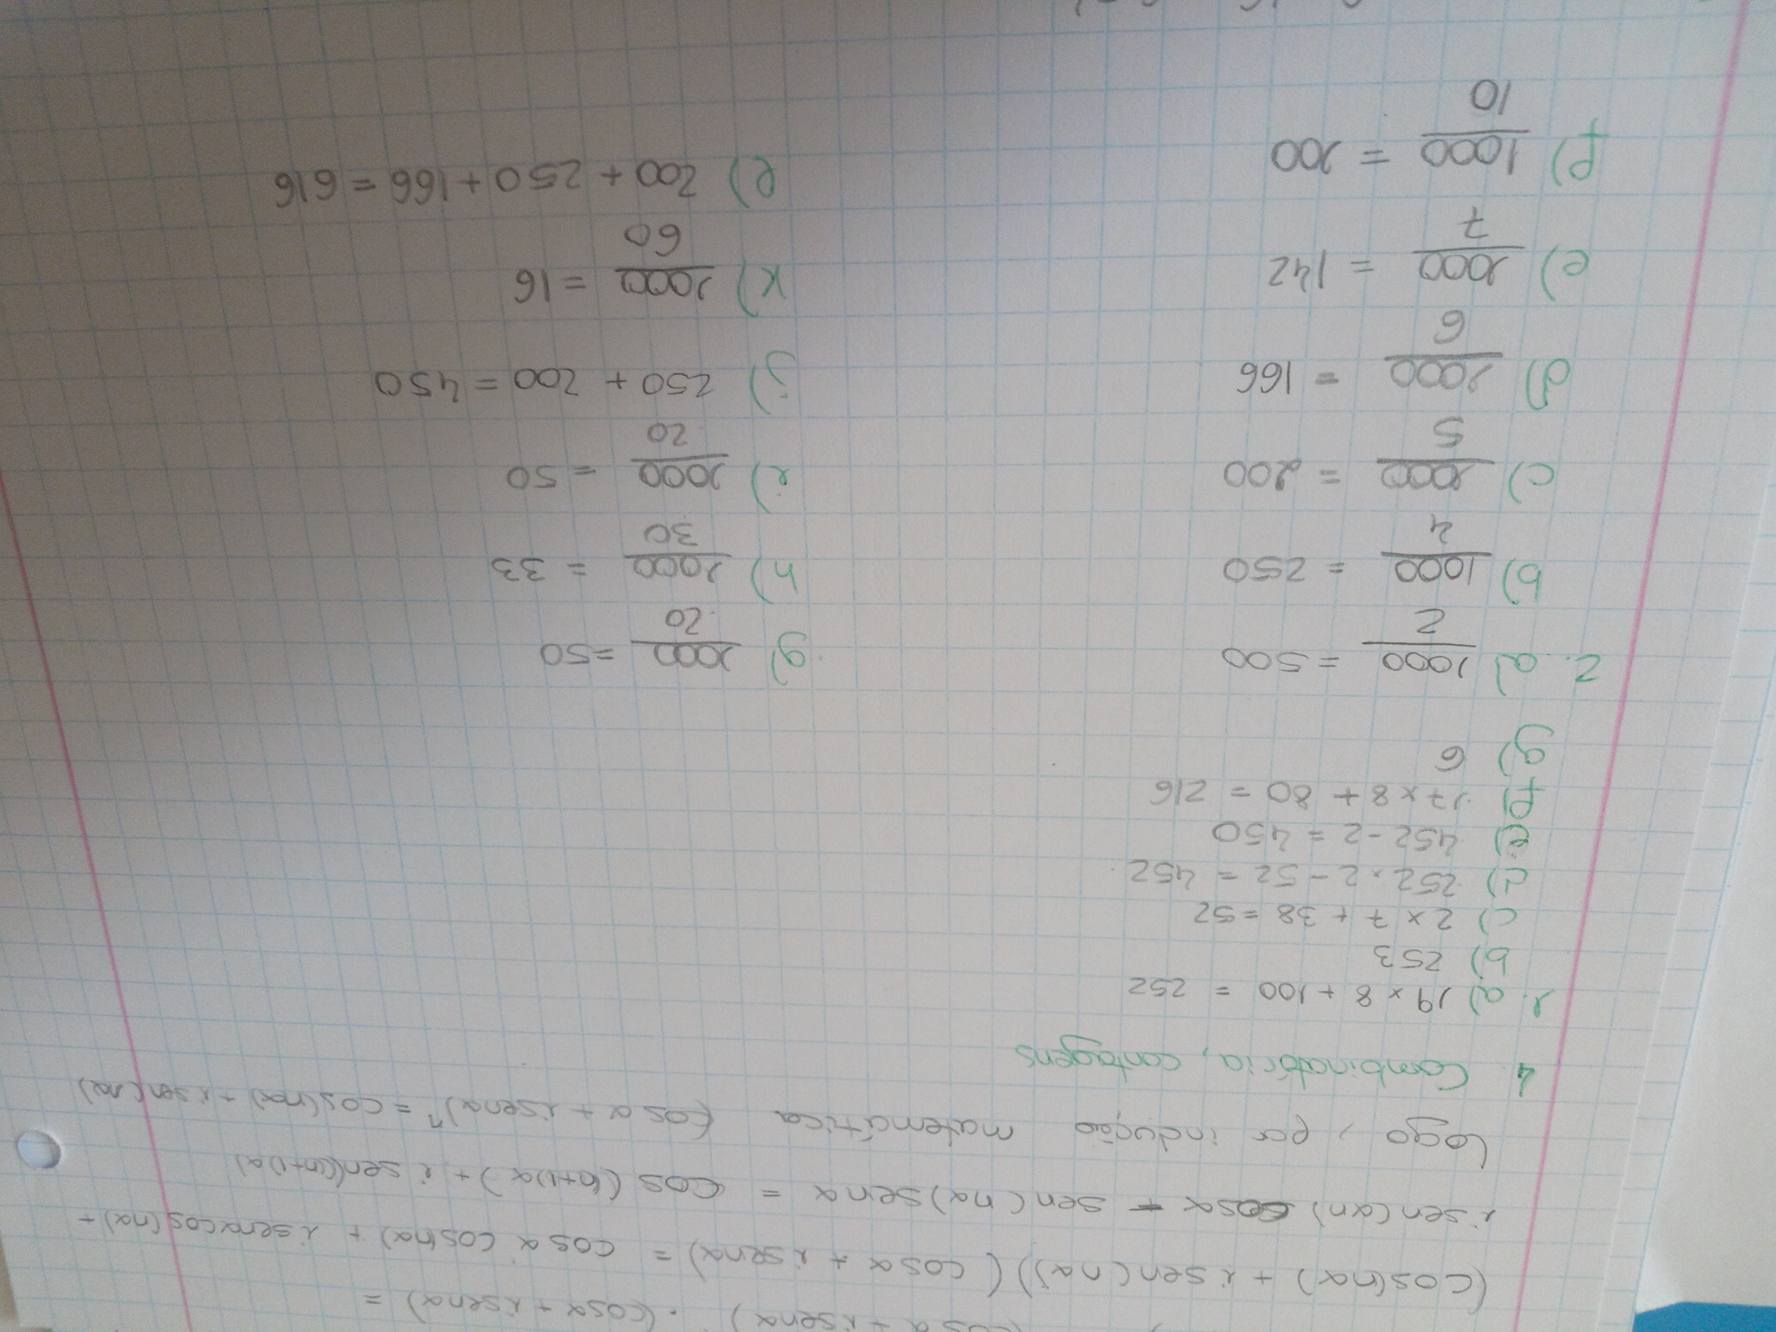 isenα) . (cosα + isenα) =
(cos(nα) + i sen(nα)) (cosα + i senα) = cosα cos(nα) + i senα cos(nα) -
i sen(αn) cosα - sen(nα) senα = cos((n+1)α) + i sen((n+1)α)
Logo, por indução matemática (cosα + i senα)ⁿ = cos(nα) + i sen(nα)
4. Combinatória, contagens
1. a) 19 × 8 + 100 = 252
b) 253
c) 2 × 7 + 38 = 52
d) 252 . 2 - 52 = 452
e) 452 - 2 = 450
f) 17 × 8 + 80 = 216
g) 6
2. a) 1000/2 = 500
b) 1000/4 = 250
c) 1000/5 = 200
d) 1000/6 = 166
e) 1000/7 = 142
f) 1000/10 = 100
g) 1000/20 = 50
h) 1000/30 = 33
i) 1000/20 = 50
j) 250 + 200 = 450
k) 1000/60 = 16
l) 200 + 250 + 166 = 616